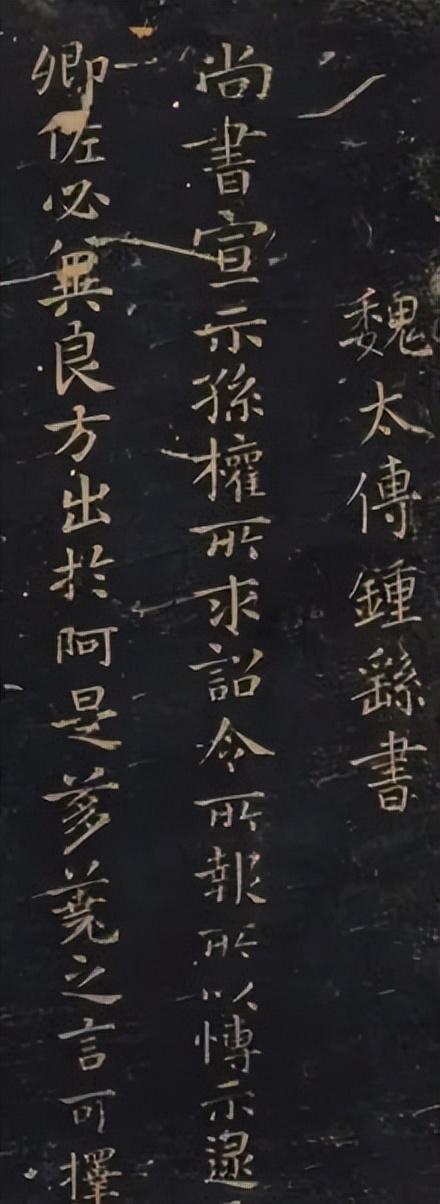 魏太傅鍾繇書
尚書宣示孫權所求詔令所報所以博示逮
卿佐必無良方出於阿是芻蕘之言可擇